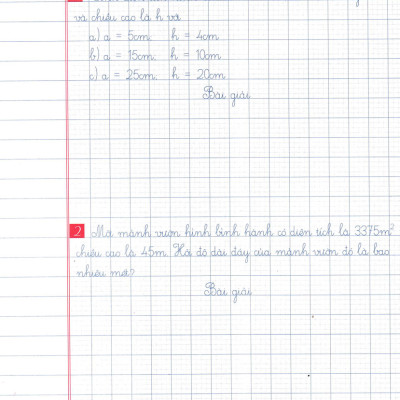 và chiều cao là h với
a) a = 5cm, h = 4cm
b) a = 15cm, h = 10cm
c) a = 25cm, h = 20cm
Bài giải
2 Một mảnh vườn hình bình hành có diện tích là 3375m²
chiều cao là 45m. Hỏi độ dài đáy của mảnh vườn đó là bao
nhiêu mét?
Bài giải